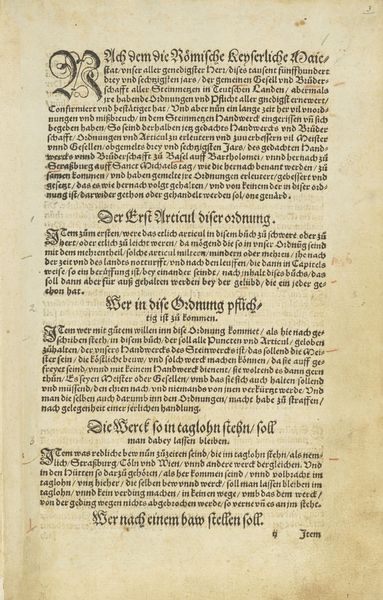 3
NAch dem die Römische Keyserliche Maie-
stat / vnser aller genedigster Herr / dises tausent fünffhundert
drey vnd sechtzigsten jars / der gemeinen Gesell vnd Brüder-
schafft aller Steinmetzen in Teutschen Landen / abermals
ire habende Ordnungen vnd Pflicht aller gnedigst ernewert /
Confirmiert vnd bestätiget hat / Vnd aber nun ein lange zeit her vil vnord-
nungen vnd mißbreuch / in dem Steinmetzen Handwerck eingerissen vn̄ sich
begeben haben / So seind derhalben ietz gedachts Handwercks vnd Brüder
schafft / Ordnungen vnd Articul zu erleutern vnd zuuerbessern vil Meister
vnnd Gesellen / obgemelts drey vnd sechtzigsten Jars / des gedachten Hand-
wercks vnnd Brüderschafft zu Basel auff Bartholomei / vnnd hernach zu
Straßburg auff Sanct Michaels tag / wie die hernach benant werden / zu
samen kommen / vnd haben gemelte ire Ordnungen erleutert / gebessert vnd
gesetzt / das es wie hernach volgt gehalten / vnd von keinem der in diser ord-
nung ist / darwider gethon oder gehandelt werden sol / one genad.
Der Erst Articul diser ordnung.
ITem zům ersten / were das etlich articul in disem bůch zů schwer oder zů
hert / oder etlich zů leicht weren / da mögend die so in vnser Ordnūg seind
mit dem mehrentheil / solche articul miltern / mindern oder mehren / ihe nach
der zeit vnd des lands notturfft / vnd nach den leuffen / die dann in Capitels
weise / so ein berůffung ist / bey einander seindt / nach inhalt dises bůchs / das
soll dann aber für auß gehalten werden bey der gelübd / die ein jeder ge-
thon hat.
Wer in dise Ordnung pflich-
tig ist zů kommen.
ITem wer mit gůtem willen inn dise Ordnung kommet / als hie nach ge-
schriben steth / in disem bůch / der soll alle Puncten vnd Articul / geloben
zůhalten / der vnsers Handwercks des Steinwercks ist / das sollend die Mei-
ster sein / die köstliche bouw / vnd solch werck machen können / da sie auff ge-
freyet seind / vnnd mit keinem Handwerck dienent / sie woltend es dann gern
thůn / Es seyen Meister oder Gesellen / vmb das sie sich auch halten sollend
vnd müssend / den ehren nach / vnd niemands von inen verkürtzt werde / Vnd
man die selben auch darumb inn den Ordnungen / macht habe zů straffen /
nach gelegenheit einer jerlichen handlung.
Die Werck so in taglohn stehn / soll
man dabey lassen bleiben.
ITem was redliche bew nůn zůzeiten seind / die im taglohn stehn / als nem-
lich / Straßburg / Cöln vnd Wien / vnnd andere werck dergleichen / Vnd
in den Hütten so dar zů gehören / als her kommen seind / vnnd volbracht im
taglohn / vntz hieher / die selben bew vnnd werck / soll man lassen bleiben im
taglohn / vnnd kein verding machen / in keinen wege / vmb das dem werck /
von der geding wegen nichts abgebrochen werde / so verne vn̄ es an jm stehe.
Wer nach einem baw stellen soll.
ij Item